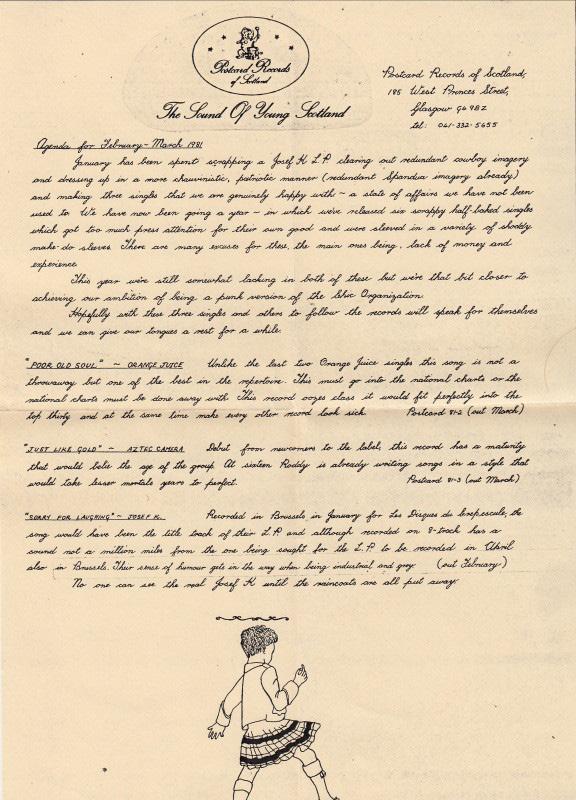 Postcard Records
of Scotland
The Sound Of Young Scotland
Postcard Records of Scotland,
185 West Princes Street,
Glasgow G4 9BZ
tel: 041-332-5655
Agenda for February - March 1981
January has been spent scrapping a Josef K L.P. clearing out redundant cowboy imagery
and dressing up in a more chauvinistic, patriotic manner (redundant Spandua imagery already)
and making three singles that we are genuinely happy with - a state of affairs we have not been
used to. We have now been going a year - in which we've released six scrappy half-baked singles
which got too much press attention for their own good and were sleeved in a variety of shoddy
make-do sleeves. There are many excuses for these, the main ones being, lack of money and
experience.
This year we're still somewhat lacking in both of these but we're that bit closer to
achieving our ambition of being a punk version of the Chic Organization.
Hopefully with these three singles and others to follow the records will speak for themselves
and we can give our tongues a rest for a while.
"POOR OLD SOUL" ~ ORANGE JUICE Unlike the last two Orange Juice singles this song is not a
throwaway but one of the best in the repertoire. This must go into the national charts or the
national charts must be done away with. This record oozes class it would fit perfectly into the
top thirty and at the same time make every other record look sick. Postcard 81-2 (out March)
"JUST LIKE GOLD" ~ AZTEC CAMERA Debut from newcomers to the label, this record has a maturity
that would belie the age of the group. At sixteen Roddy is already writing songs in a style that
would take lesser mortals years to perfect. Postcard 81-3 (out March)
"SORRY FOR LAUGHING" ~ JOSEF K. Recorded in Brussels in January for Les Disques du Crepescule, the
song would have been the title track of their L.P. and although recorded on 8-track has a
sound not a million miles from the one being sought for the L.P. to be recorded in April
also in Brussels. Their sense of humour gets in the way when being industrial and grey. (out February)
No one can see the real Josef K until the raincoats are all put away.